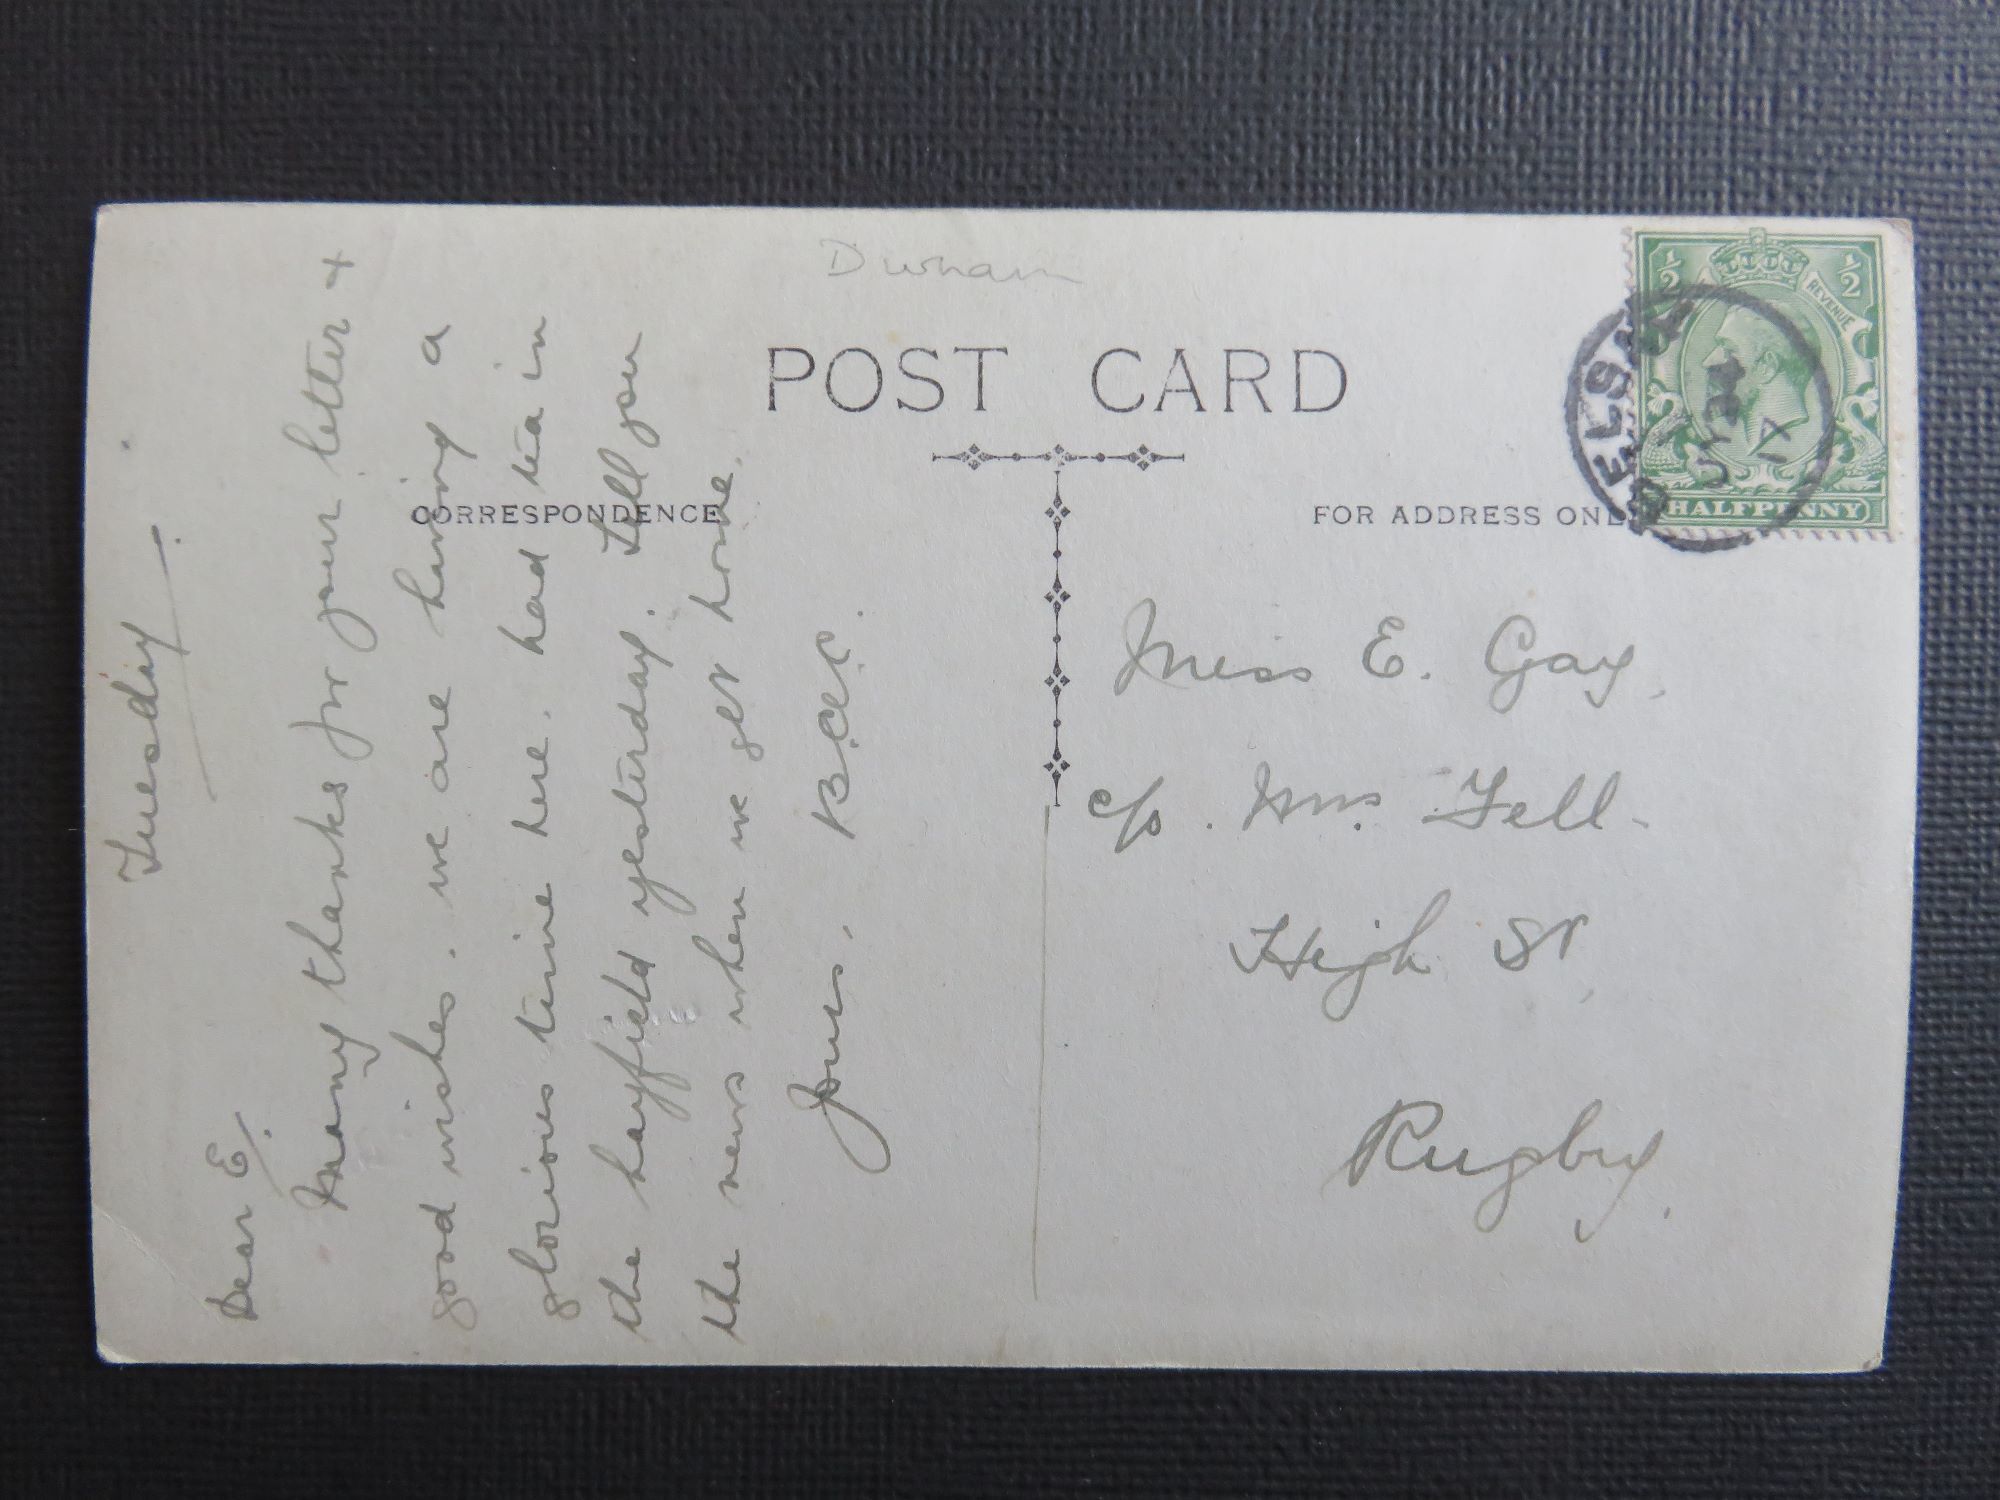 Durham
POST CARD
CORRESPONDENCE
FOR ADDRESS ONL
½ ½
REVENUE
HALFPENNY
BELSAY
17
Tuesday.
Dear E.
Many thanks for your letter +
good wishes. we are having a
glorious time here. had tea in
the hayfield yesterday. Tell you
the news when we get home.
Yours.
Miss E. Gay,
c/o. Mrs. Fell.
High St,
Rugby.